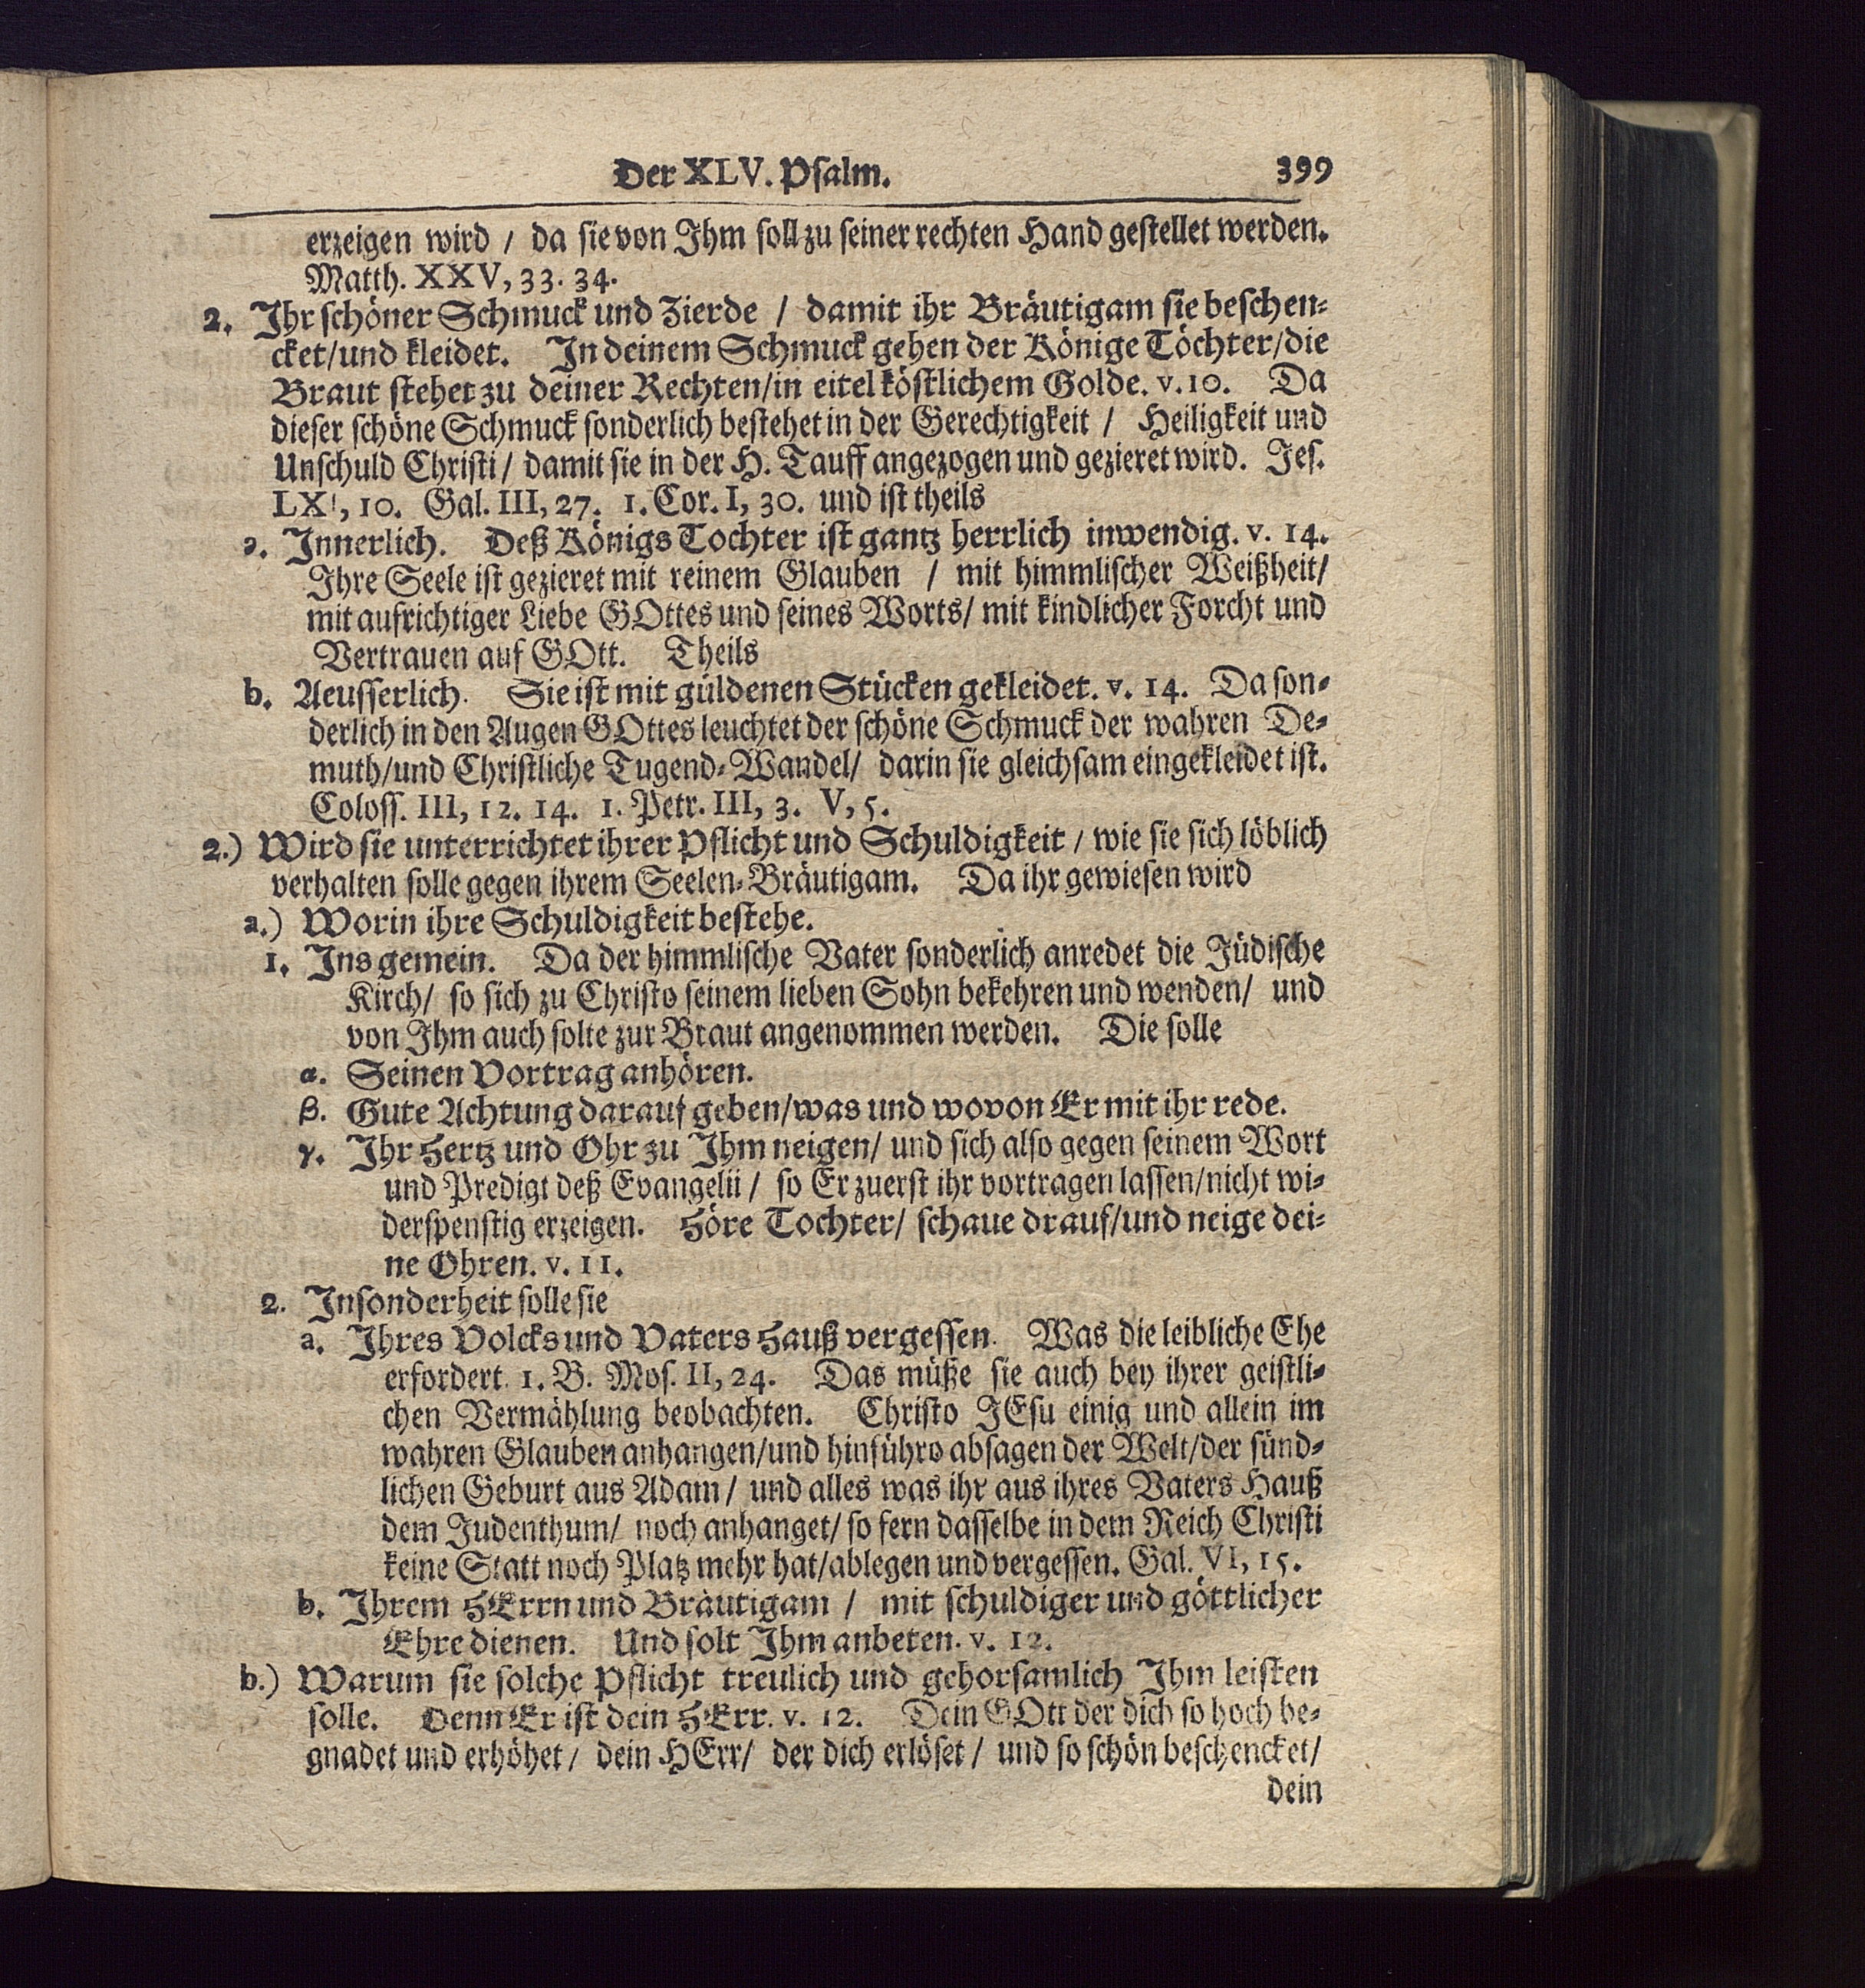 Der XLV. Psalm. 399
erzeigen wird / da sie von Ihm soll zu seiner rechten Hand gestellet werden.
Matth. XXV, 33. 34.
2. Ihr schöner Schmuck und Zierde / damit ihr Bräutigam sie beschen-
cket/und kleidet. In deinem Schmuck gehen der Könige Töchter/die
Braut stehet zu deiner Rechten/in eitel köstlichem Golde. v. 10. Da
dieser schöne Schmuck sonderlich bestehet in der Gerechtigkeit / Heiligkeit und
Unschuld Christi / damit sie in der H. Tauff angezogen und gezieret wird. Jes.
LXI, 10. Gal. III, 27. 1. Cor. I, 30. und ist theils
a. Innerlich. Deß Königs Tochter ist gantz herrlich inwendig. v. 14.
Ihre Seele ist gezieret mit reinem Glauben / mit himmlischer Weißheit/
mit aufrichtiger Liebe GOttes und seines Worts/ mit kindlicher Forcht und
Vertrauen auf GOtt. Theils
b. Aeusserlich. Sie ist mit güldenen Stücken gekleidet. v. 14. Da son-
derlich in den Augen GOttes leuchtet der schöne Schmuck der wahren De-
muth/und Christliche Tugend-Wandel/ darin sie gleichsam eingekleidet ist.
Coloss. III, 12. 14. 1. Petr. III, 3. V, 5.
2.) Wird sie unterrichtet ihrer Pflicht und Schuldigkeit / wie sie sich löblich
verhalten solle gegen ihrem Seelen-Bräutigam. Da ihr gewiesen wird
a.) Worin ihre Schuldigkeit bestehe.
1. Ins gemein. Da der himmlische Vater sonderlich anredet die Jüdische
Kirch/ so sich zu Christo seinem lieben Sohn bekehren und wenden/ und
von Ihm auch solte zur Braut angenommen werden. Die solle
α. Seinen Vortrag anhören.
β. Gute Achtung darauf geben/was und wovon Er mit ihr rede.
γ. Ihr Hertz und Ohr zu Ihm neigen/ und sich also gegen seinem Wort
und Predigt deß Evangelii / so Er zuerst ihr vortragen lassen/nicht wi-
derspenstig erzeigen. Höre Tochter/ schaue drauf/und neige dei-
ne Ohren. v. 11.
2. Insonderheit solle sie
a. Ihres Volcks und Vaters Hauß vergessen. Was die leibliche Ehe
erfordert. 1. B. Mos. II, 24. Das müße sie auch bey ihrer geistli-
chen Vermählung beobachten. Christo JEsu einig und allein im
wahren Glauben anhangen/und hinführo absagen der Welt/der sünd-
lichen Geburt aus Adam / und alles was ihr aus ihres Vaters Hauß
dem Judenthum/ noch anhanget/ so fern dasselbe in dem Reich Christi
keine Statt noch Platz mehr hat/ablegen und vergessen. Gal. VI, 15.
b. Ihrem HErrn und Bräutigam / mit schuldiger und göttlicher
Ehre dienen. Und solt Ihm anbeten. v. 12.
b.) Warum sie solche Pflicht treulich und gehorsamlich Ihm leisten
solle. Denn Er ist dein HErr. v. 12. Dein GOtt der dich so hoch be-
gnadet und erhöhet / dein HErr/ der dich erlöset / und so schön beschencket/
dein